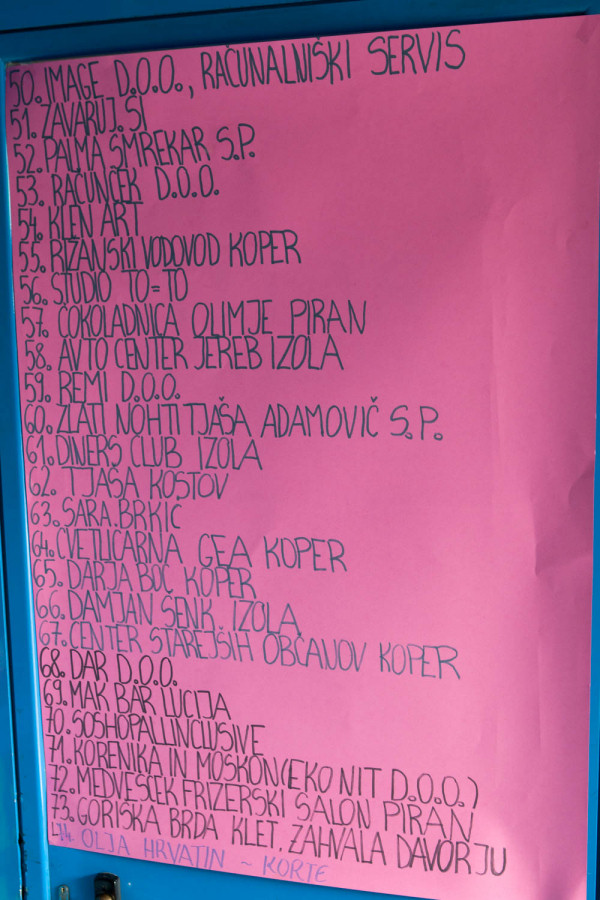 50. IMAGE D.O.O., RAČUNALNIŠKI SERVIS
51. ZAVARUJ.SI
52. PALMA SMREKAR S.P.
53. RAČUNČEK D.O.O.
54. KLEN ART
55. RIŽANSKI VODOVOD KOPER
56. STUDIO TO=TO
57. ČOKOLADNICA OLIMJE PIRAN
58. AVTO CENTER JEREB IZOLA
59. REMI D.O.O.
60. ZLATI NOHTI TJAŠA ADAMOVIČ S.P.
61. DINERS CLUB IZOLA
62. TJAŠA KOSTOV
63. SARA BRKIČ
64. CVETLIČARNA GEA KOPER
65. DARJA BOC KOPER
66. DAMJAN SENK IZOLA
67. CENTER STAREJŠIH OBČANOV KOPER
68. DAR D.O.O.
69. MAK BAR LUCIJA
70. SOSHOPALLINCLUSIVE
71. KORENIKA IN MOŠKON (EKO NIT D.O.O.)
72. MEDVEŠČEK FRIZERSKI SALON PIRAN
73. GORIŠKA BRDA KLET, ZAHVALA DAVORJU
74. OLJA HRVATIN ~ KORTE